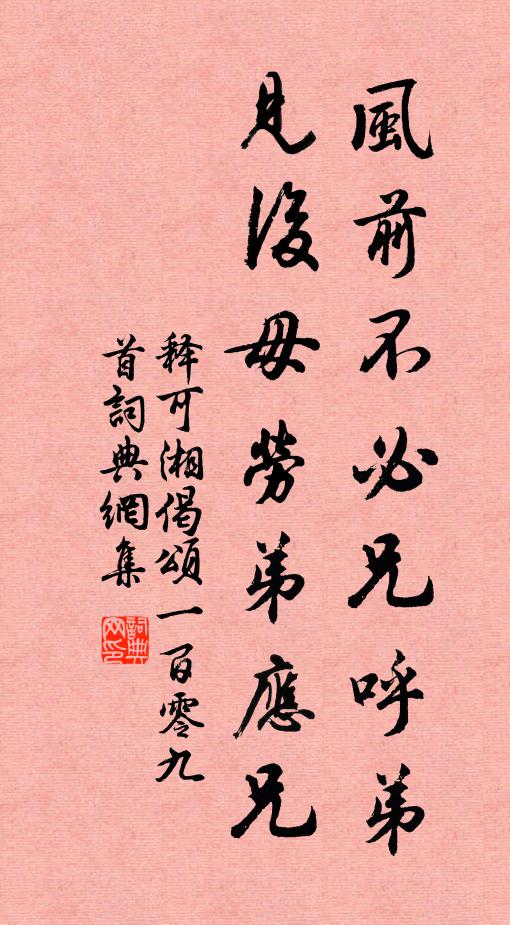 風前不必兄呼弟
見後毋勞弟應兄
释可湘偈頌一百零九
首詞典網集
詞典网印